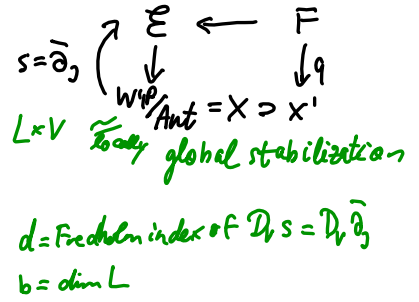 ℰ ← F
s = ∂̄_J
↓ ↓ q
W^{1,p}/Aut = X ⊃ X'
L × V ≈ locally global stabilization
d = Fredholm index of D_v s = D_v ∂̄_J
b = dim L